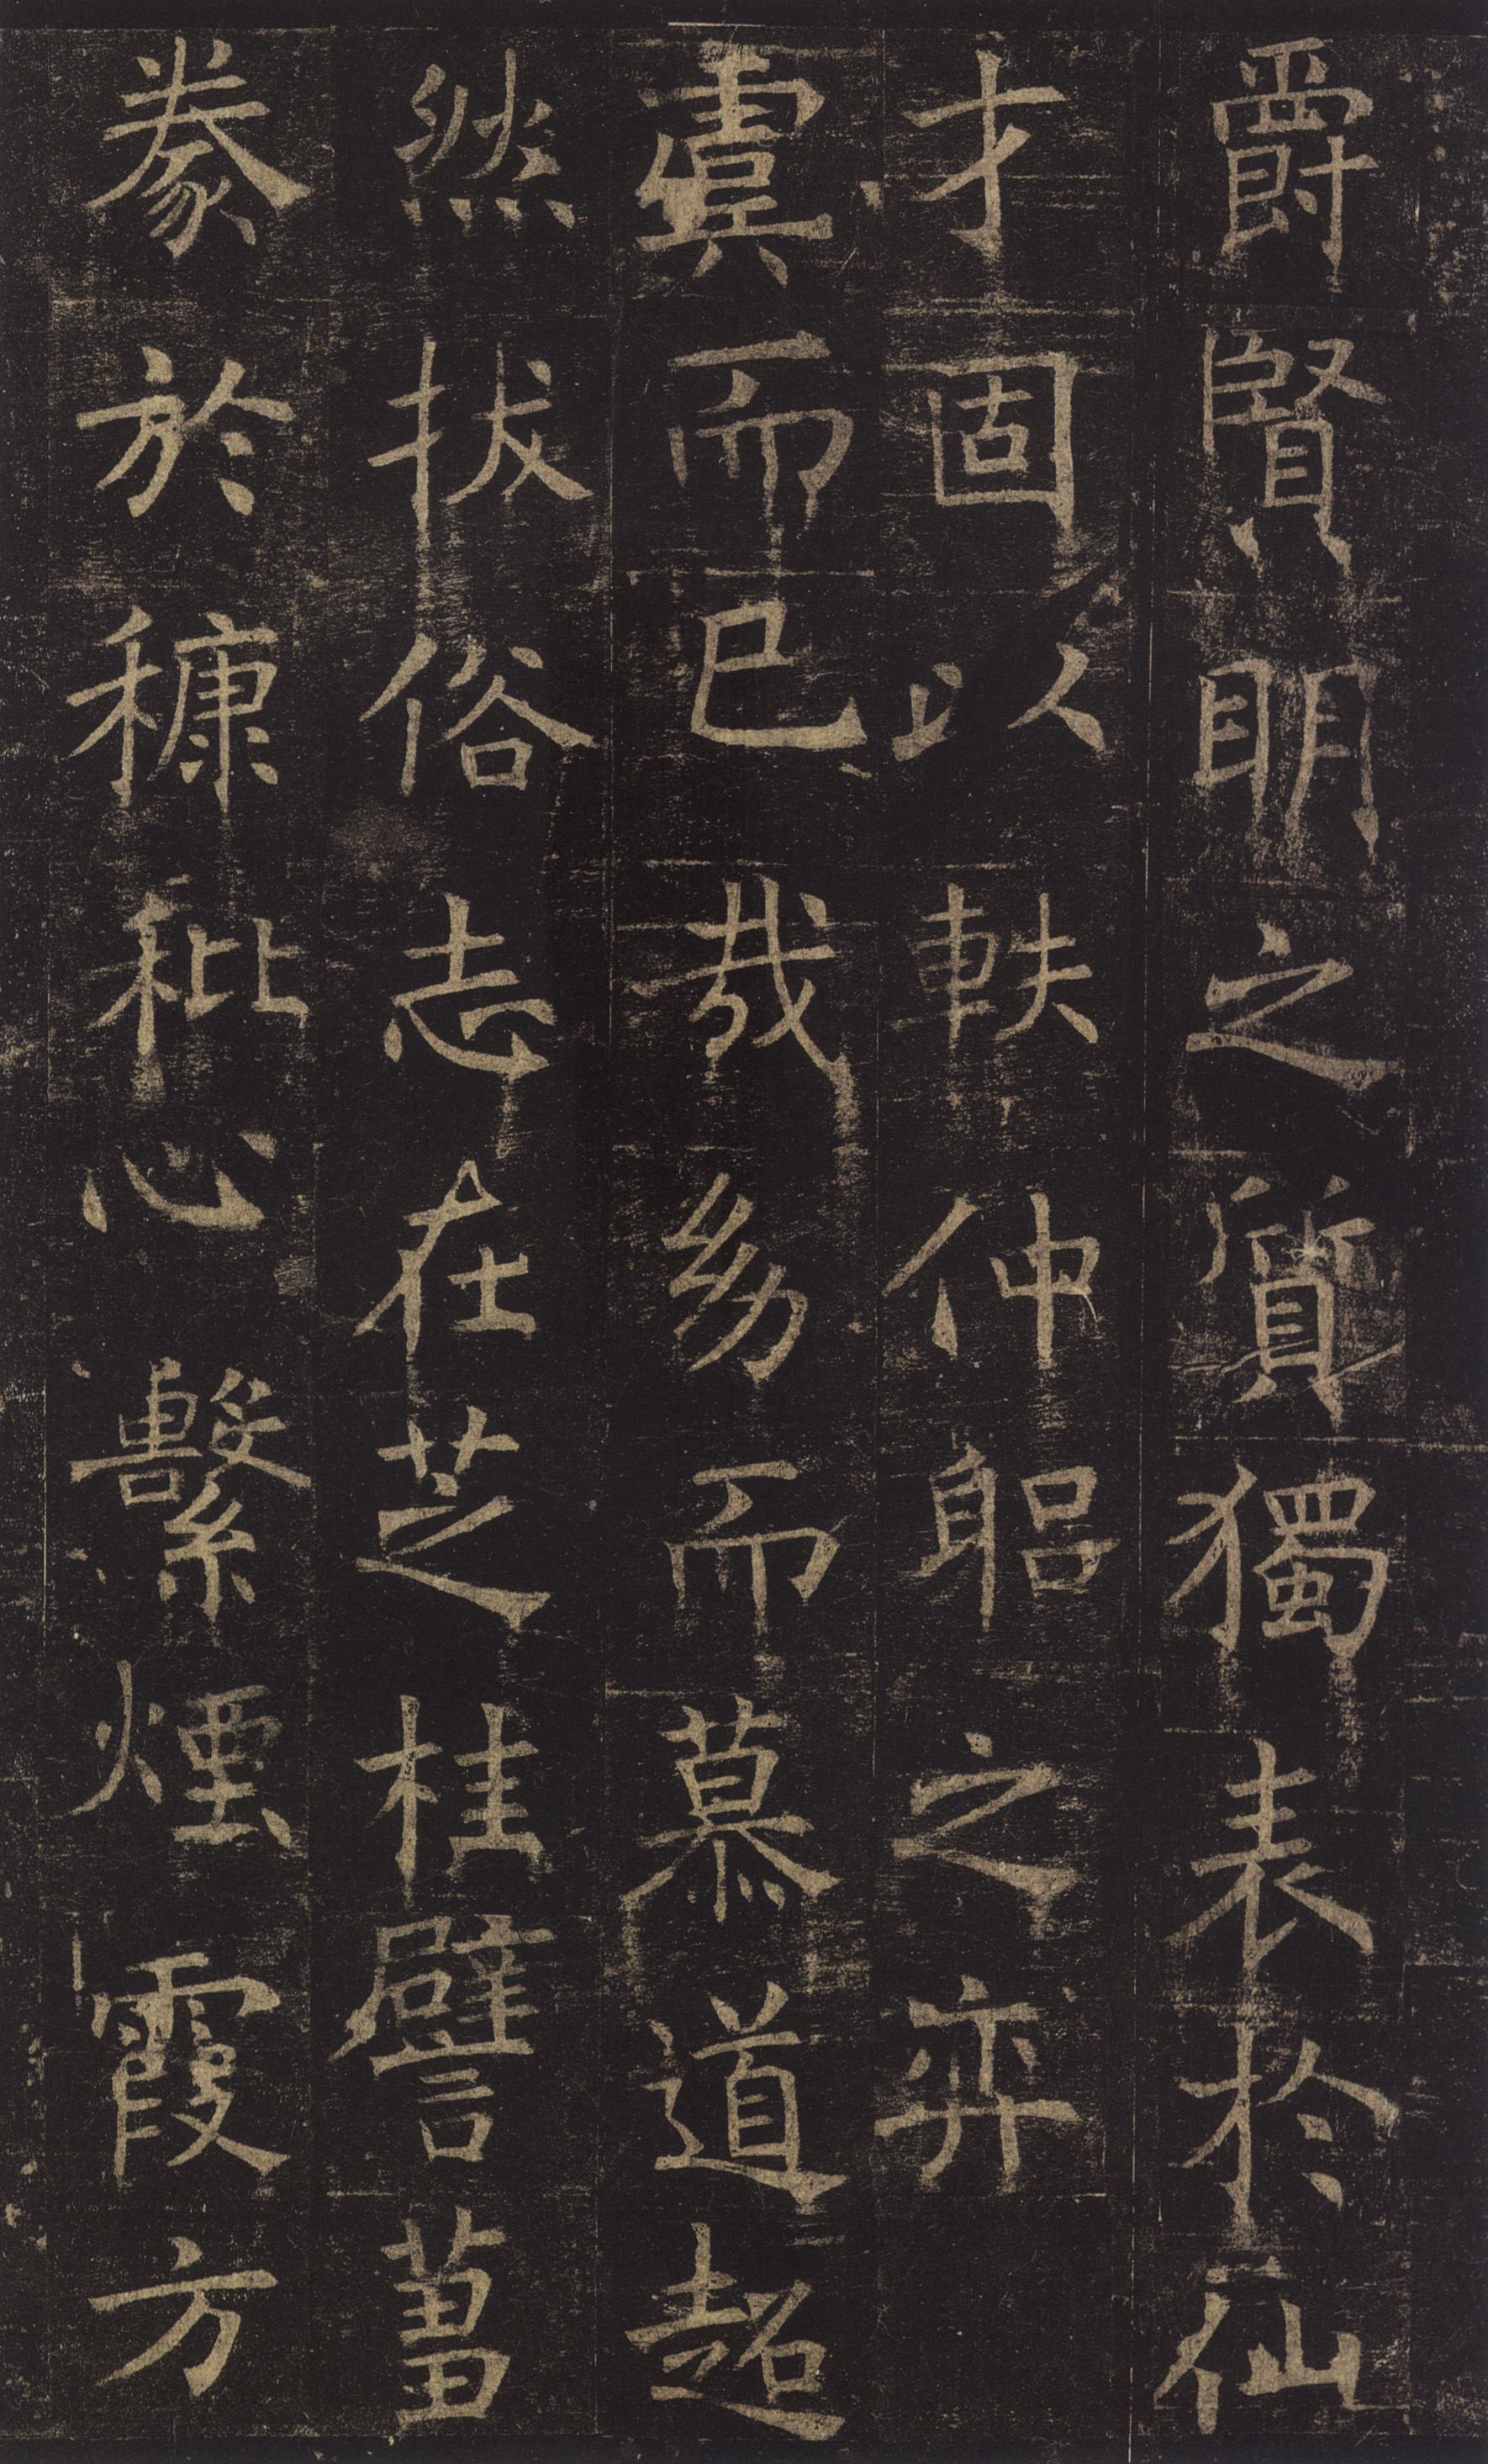 爵賢明之質獨表於仙
才固以軼仲躳之弈
虞而已哉幼而慕道超
然拔俗志在芝桂譬芻
豢於穅秕心繫煙霞方